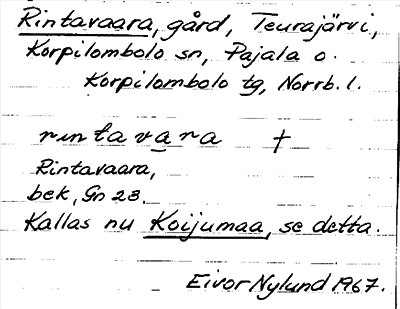 Rintavaara, gård, Teurajärvi,
Korpilombolo sn, Pajala o.
Korpilombolo tg, Norrb. l.
rintavara †
Rintavaara,
bek, Gn 23.
Kallas nu Koijumaa, se detta.
Eivor Nylund 1967.